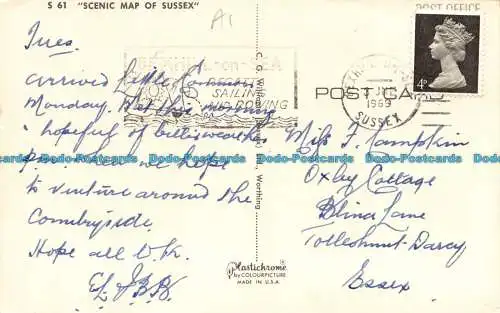 S 61 "SCENIC MAP OF SUSSEX"
A1
POST OFFICE
Tues.
-on-SEA
REGATTA
SAILING
AND ROWING
4D
POST CARD
1969
SUSSEX
arrived
Monday. Wet this morning
hopeful of better weather
we hope
to venture around the
Countryside.
Hope all O.K.
C. G. Williams
Worthing
Miss F. Tampkin
Oxby Cottage
Blind Lane
Tolleshunt-Darcy
Essex
Plastichrome
by COLOURPICTURE
MADE IN U.S.A.
Dodo-Postcards Dodo-Postcards Dodo-Postcards Dodo-Postcards Dodo-Postcards